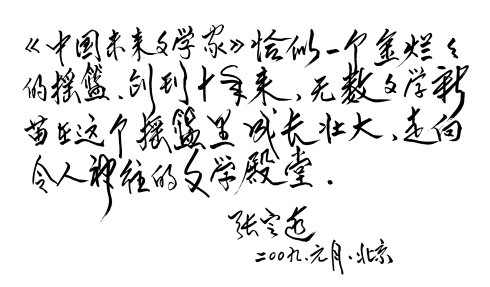 《中国未来文学家》恰似一个金灿灿
的摇篮、创刊十年来，无数文学新
苗在这个摇篮里成长壮大，走向
令人神往的文学殿堂.
二00九.元月.北京